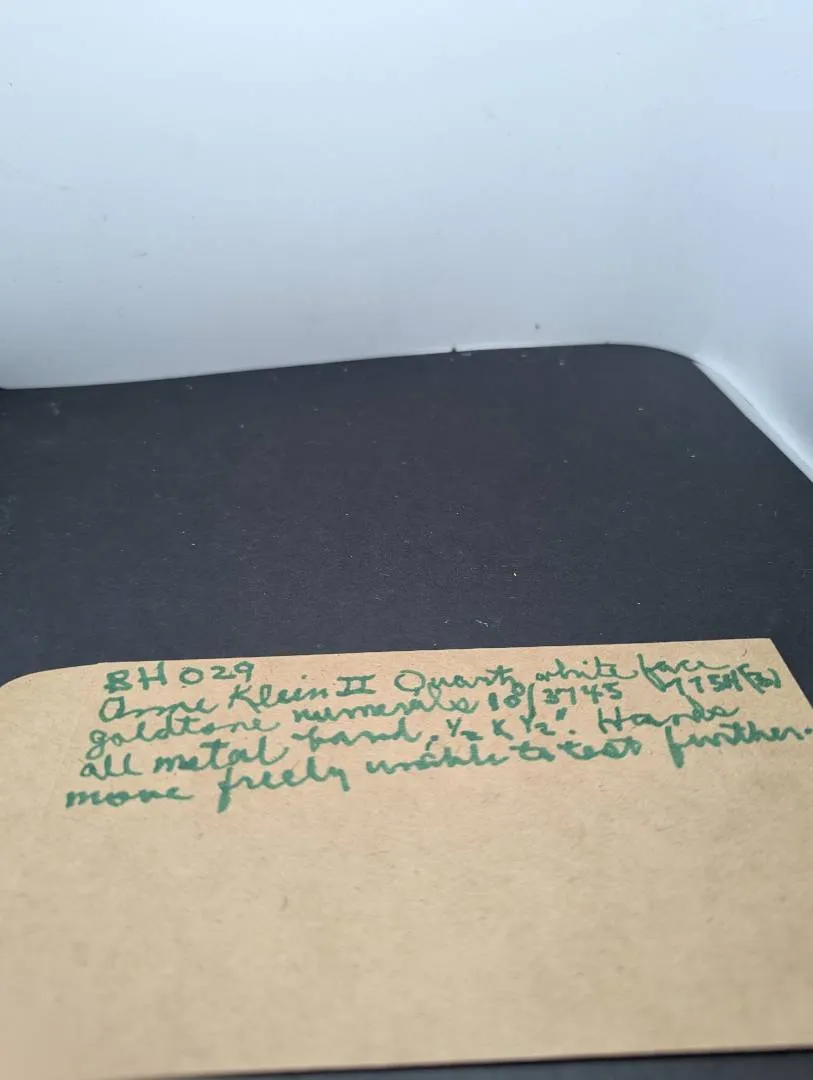 BH 029
Anne Klein II Quartz white face
goldtone numerals 10/3745 775H
all metal band, ½ x ½". Hands
move freely unable to test further.